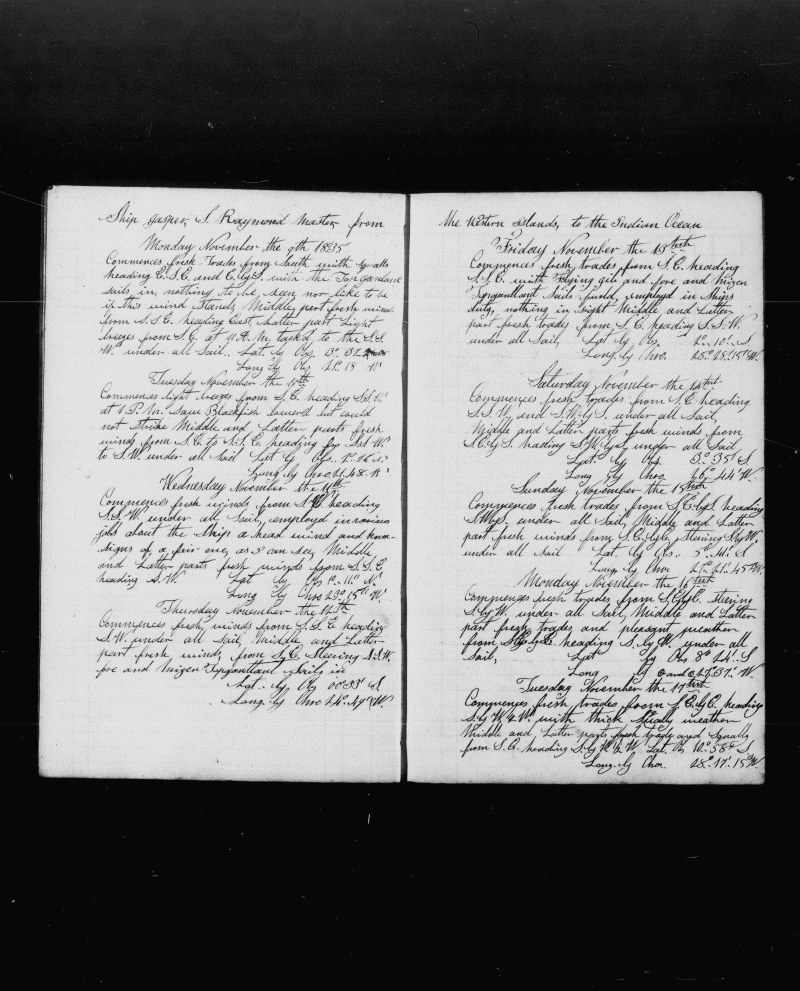 Ship Jasper, S Raymond Master from
Monday November the 9th 1835
Commences fresh Trades from South with squalls
heading E.S.E. and E.by S. with the Topgalland
sails in nothing to be seen nor like to be
if this wind stands, Middle part fresh winds
from S.S.E. heading East Latter part Light
breezes from S.E. at 11.A.M. tack'd to the S.S.
W. under all Sail. Lat. by Obs. 3° 32
Long by Obs 21° 18 W
Tuesday November the 10th
Commences light breezes from S.E. heading S.S.W.
at 1.P.M. Saw Blackfish lowerd but could
not strike Middle and Latter parts fresh
winds from S.E. to S.S.E. heading by S.W.
to S.W under all Sail Lat by Obs.
Long by Chro 21.48. W
Wednesday November the 11th
Commences fresh winds from S. heading
S.S.W. under all Sail, employd in various
jobs about the Ship a head wind and know
signs of a fair one, as I can see, Middle
and Latter parts fresh winds from S.S.E
heading S.W. Lat by Obs 1° 11 N
Long by Chro 23° 15 W
Thursday November the 12th
Commences fresh winds from S.S.E heading
S.W. under all Sail, Middle, and Latter
part fresh winds from S,E Steering S.S.W.
fore and Mizen Topganttant Sails in
Lat. by Obs 00° 33' S
Long. by Chro 24° 49' W
the Western Islands, to the Indian Ocean
Friday November the 13teth
Commences fresh trades from S.E. heading
S.S.E. with Flying geb and fore and Mizen
Topganttant Sails furld, employd in Ships
duty, nothing in sight Middle and Latter
part fresh trades from S.E. heading S.S.W.
under all Sail, Lat by Obs. 2° 10' S
Long by Chro. 25° 28' 15" W.
Saturday November the 14teth
Commences fresh trades from S.E heading
S.S.W. and S.W.by S. under all Sail,
Middle and Latter parts fresh winds from
S.E.by S. heading S.W.by S. under all Sail
Lat. by Obs. 3° 35' S
Long by Chro. 26° 44 W.
Sunday November the 15teth
Commences fresh trades from S.E.by S heading
S.W.by S. under all Sail, Middle and Latter
part fresh winds from S.E.by E. Steering S.by W.
under all Sail Lat. by Obs. 5° 41' S
Long. by Chro 27° 21' 45" W.
Monday November the 16teth
Commences fresh trades from S.E.by E. Steering
S.by W. under all Sail, Middle and Latter
part fresh trades and pleasant weather
from S.E.by E heading S.by W. under all
Sail, Lat by Obs 8° 24' S
Long by 27° 37' W.
Tuesday November the 17teth
Commences fresh trades from S.E.by E. heading
S.by W.½ W. with thick Squaly weather
Middle and Latter parts fresh trades and Squalls
from S.E. heading S.by W.½ W. Lat Obs 10° 58' S
Long. by Chro. 28° 17' 15" W.